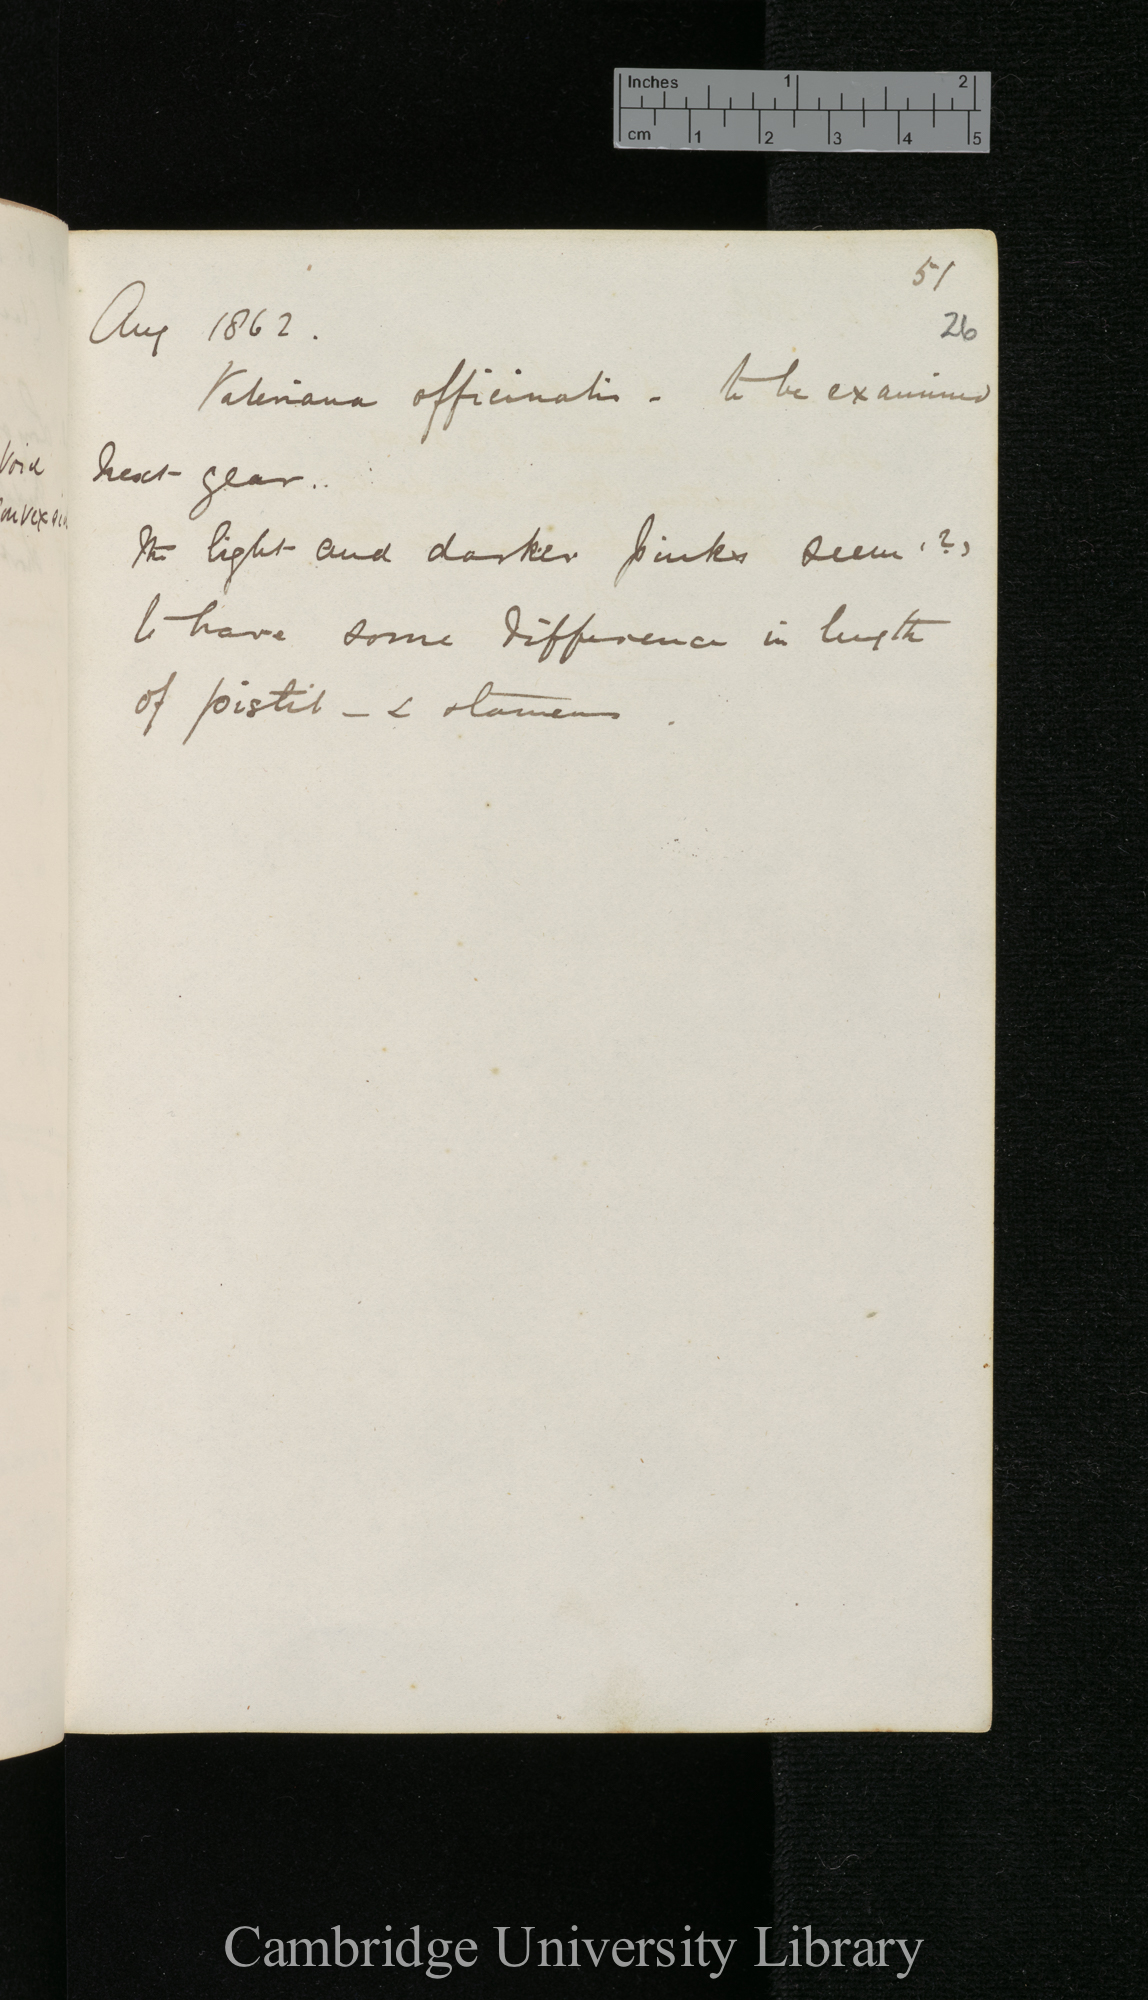 Inches 1 2
cm 1 2 3 4 5
51
Aug 1862.
26
Valeriana officinalis - to be examined
next year..
The light and darker pinks seem (?)
to have some difference in length
of pistil - & stamens.
Cambridge University Library